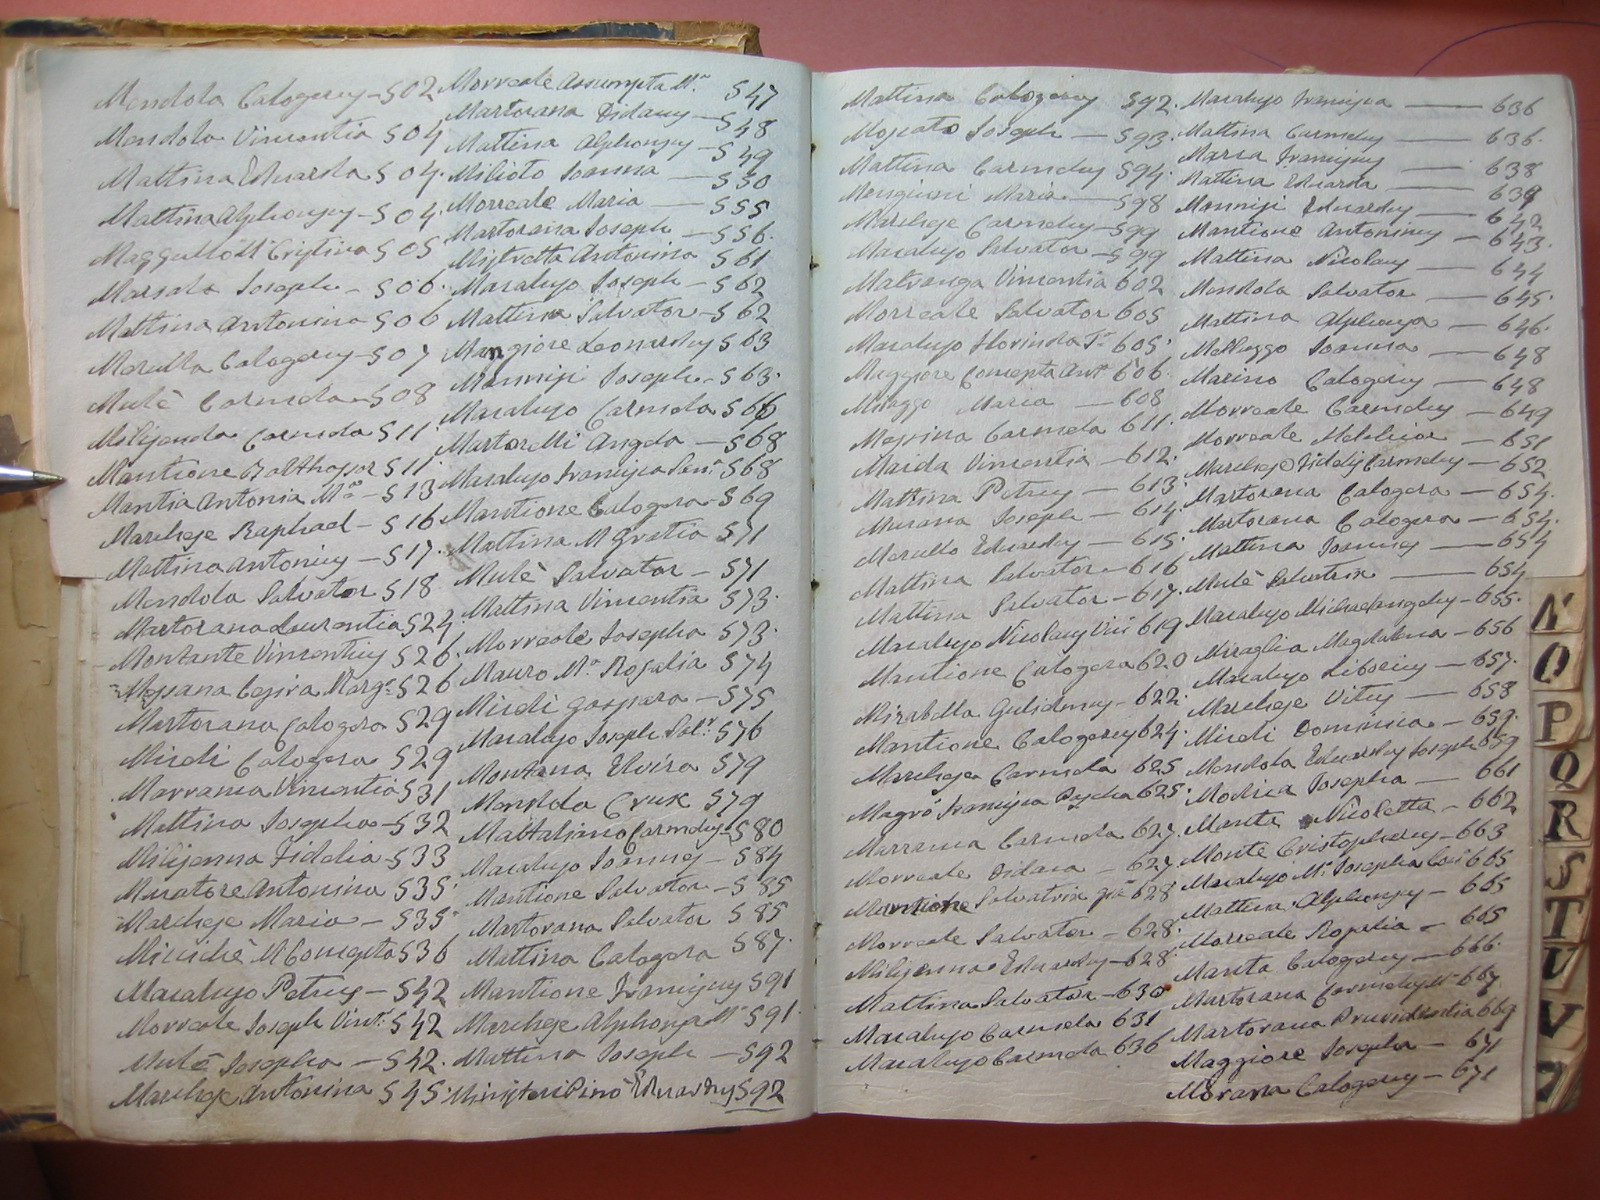 Mendola Calogerus - 502
Mendola Vincentia 504
Mattina Eduarda 504.
Mattina Alphonsus - 504.
Maria Cristina 505
Marsala Joseph - 506.
Mattina Antonina 506
Morella Calogerus - 507
Mulè Carmela - 508
Milisenda Carmela 511
Mantione Balthassar 511.
Mantia Antonia Ma - 513
Marchese Raphael - 516
Mattina Antonius - 517.
Mendola Salvator 518
Martorana Laurentia 524.
Montante Vincentius 526.
526
Martorana Calogera 529
Miceli Calogera 529
Marrama Vincentia 531
Mattina Josepha - 532
Milisenna Fidelia - 533
Muratore Antonina 535.
Marchese Maria - 535
Micichè Ma Concepta 536
Macaluso Petrus - 542
Morreale Joseph Vinc. 542
Mulè Josepha - 542.
Marchese Antonina 545.
Morreale Assumpta Ma 547
Martorana Didacus - 548
Mattina Alphonsus - 549
Milioto Joanna - 550
Morreale Maria - 555
Martorana Joseph - 556.
Mistretta Antonina 561
Macaluso Joseph - 562
Mattina Salvator - 562
Mangiore Leonardus 563
Mannisi Joseph - 563.
Macaluso Carmela 566
Martorelli Angela - 568
Macaluso Francisca 568
Mantione Calogera - 569
Mattina M Gratia 571
Mulè Salvator - 571
Mattina Vincentia 573.
Morreale Josepha 573.
Mauro Ma Rosalia 574
Miceli Gaspara - 575
Macaluso Joseph 576
Montana Elvira 579
Mendola Crux 579
Mattaliano Carmelus - 580
Macaluso Joannes - 584
Mantione Salvator - 585
Martorana Salvator 585
Mattina Calogera 587.
Mantione Franciscus 591
Marchese Alphonsa Ma 591.
Mattina Joseph - 592
Ministeri Pino Eduardus 592
Mattina Calogerus 592.
Moscato Joseph - 593.
Mattina Carmelus 594.
Mangioni Maria - 598
Marchese Carmelus - 599
Macaluso Salvator - 599
Malvanga Vincentia 602
Morreale Salvator 605
Macaluso Florinda 605.
Maggiore Concepta Anta 606.
Maria - 608
Messina Carmela 611.
Maida Vincentia - 612.
Mattina Petrus - 613.
Murana Joseph - 614.
Morello Eduardus - 615.
Mattina Salvator - 616
Mattina Salvator - 617.
Macaluso Nicolaus Vin 619
Mantione Calogera 620
Mirabella Gulielmus - 622.
Mantione Calogerus 624.
Marchese Carmela 625
Magrò Francisca 625.
Marrama Carmela 627.
Morreale - 627.
Mantione Salvatrix 628
Morreale Salvator - 628.
Milisenna Eduardus - 628.
Mattina Salvator - 630
Macaluso Carmela 631
Macaluso Carmela 636
Macaluso Francisca - 636
Mattina Carmelus - 636.
Marsa Franciscus - 638
Mattina Eduarda - 639
Mannisi Eduardus - 642
Mantione Antoninus - 643.
Mattina Nicolaus - 644
Mendola Salvator - 645.
Mattina Alphonsa - 646.
Joanna - 648
Marino Calogerus - 648
Morreale Carmelus - 649
Morreale Melchior - 651
Marchese Fidelis Carmelus - 652
Martorana Calogera - 654.
Martorana Calogera - 654.
Mattina Joannes - 654
Mulè Salvatrix - 654
Macaluso Michaelangelus - 655.
Miraglia Magdalena - 656
Macaluso Liborius - 657.
Marchese Vitus - 658
Miceli Dominica - 659.
Mendola Eduardus Joseph 659
Modica Josepha - 661
Manta Nicoletta - 662
Monte Cristopharus - 663
Macaluso Ma Josepha 665
Mattina Alphonsus - 665
Morreale Rosalia - 665
Manta Calogerus - 666.
Martorana Carmelus Ma 667
Martorana Providentia 669
Maggiore Josepha - 671
Morana Calogerus - 671
N
O
P
Q
R
S
T
U
V
Z